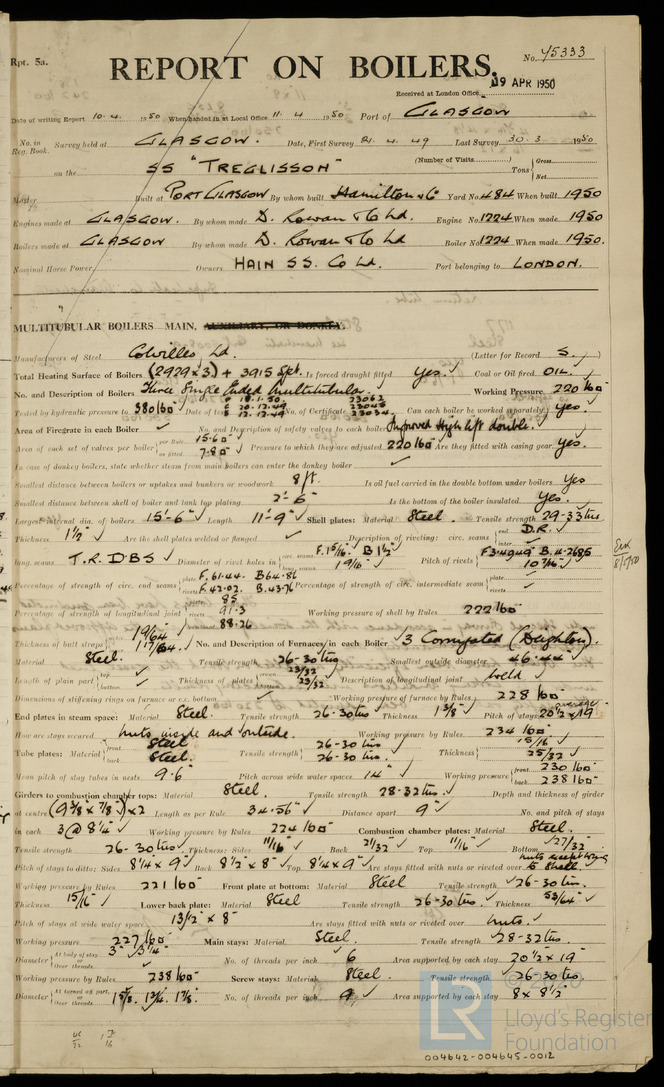 Rpt. 5a.
No. 45333
REPORT ON BOILERS.
19 APR 1950
Received at London Office
Date of writing Report 10. 4. 1950 When handed in at Local Office 11. 4 1950 Port of GLASGOW
No. in Reg. Book. Survey held at GLASGOW. Date, First Survey 21. 4. 49 Last Survey 30. 3 1950
on the SS "TREGLISSON" (Number of Visits) Tons Gross Net
Master Built at PORT GLASGOW By whom built Hamilton & Co Yard No. 484 When built 1950
Engines made at GLASGOW. By whom made D. Rowan & Co Ld. Engine No. 1224 When made 1950
Boilers made at GLASGOW By whom made D. Rowan & Co Ld Boiler No. 1224 When made 1950.
Nominal Horse Power Owners HAIN SS. Co Ld. Port belonging to LONDON.
MULTITUBULAR BOILERS MAIN, AUXILIARY, OR DONKEY.
Manufacturers of Steel Colvilles, Ld. (Letter for Record S.)
Total Heating Surface of Boilers (2929 x 3) + 3915 Spt. Is forced draught fitted Yes. Coal or Oil fired OIL.
No. and Description of Boilers Three Single Ended Multitubular Working Pressure 220 lbs
Tested by hydraulic pressure to 380 lbs Date of test 18.1.50. 20.12.49 12.12.49 No. of Certificate 23062 23045 23034 Can each boiler be worked separately Yes.
Area of Firegrate in each Boiler No. and Description of safety valves to each boiler Improved High lift double.
Area of each set of valves per boiler per Rule 15.60 as fitted 7.80 Pressure to which they are adjusted 220 lbs Are they fitted with easing gear Yes.
In case of donkey boilers, state whether steam from main boilers can enter the donkey boiler
Smallest distance between boilers or uptakes and bunkers or woodwork 8 ft. Is oil fuel carried in the double bottom under boilers Yes
Smallest distance between shell of boiler and tank top plating 2'-6" Is the bottom of the boiler insulated Yes.
Largest internal dia. of boilers 15'-6" Length 11'-9" Shell plates: Material Steel. Tensile strength 29-33 tns
Thickness 1 1/2" Are the shell plates welded or flanged Description of riveting: circ. seams end D.R. inter.
long. seams T.R. D.B.S Diameter of rivet holes in circ. seams F. 1 5/16" B 1 1/2" long. seams 1 9/16" Pitch of rivets F 3.4949 B. 4.2685 10 7/16"
Percentage of strength of circ. end seams plate F. 61.44. B 64.86 rivets F. 42.02. B. 43.76 Percentage of strength of circ. intermediate seam plate rivets
Percentage of strength of longitudinal joint plate 85 rivets 91.3 combined 88.26 Working pressure of shell by Rules 222 lbs
Thickness of butt straps 19/64 1 17/64 No. and Description of Furnaces in each Boiler 3 Corrugated (Deighton).
Material Steel. Tensile strength 26-30 tns Smallest outside diameter 46.44"
Length of plain part top bottom Thickness of plates crown 23/32 bottom 23/32 Description of longitudinal joint weld
Dimensions of stiffening rings on furnace or c.c. bottom Working pressure of furnace by Rules 228 lbs
End plates in steam space: Material Steel. Tensile strength 26-30 tns Thickness 1 3/8" Pitch of stays average 20 1/2 x 19
How are stays secured nuts inside and outside. Working pressure by Rules 234 lbs.
Tube plates: Material front Steel back Steel. Tensile strength 26-30 tns 26-30 tns Thickness 15/16" 25/32
Mean pitch of stay tubes in nests 9.6 Pitch across wide water spaces 14" Working pressure front 230 lbs back 238 lbs
Girders to combustion chamber tops: Material Steel. Tensile strength 28-32 tns. Depth and thickness of girder
at centre (9 3/8 x 7/8) x 2 Length as per Rule 34.56" Distance apart 9" No. and pitch of stays
in each 3 @ 8 1/4" Working pressure by Rules 224 lbs Combustion chamber plates: Material Steel.
Tensile strength 26-30 tns. Thickness: Sides 11/16" Back 21/32 Top 11/16" Bottom 27/32
Pitch of stays to ditto: Sides 8 1/4 x 9" Back 8 1/2 x 8" Top 8 1/4 x 9" Are stays fitted with nuts or riveted over nuts except to Shell.
Working pressure by Rules 221 lbs Front plate at bottom: Material Steel Tensile strength 26-30 tns.
Thickness 15/16" Lower back plate: Material Steel Tensile strength 26-30 tns. Thickness 53/64"
Pitch of stays at wide water space 13 1/2 x 8" Are stays fitted with nuts or riveted over nuts.
Working pressure 227 lbs Main stays: Material Steel. Tensile strength 28-32 tns.
Diameter At body of stay or Over threads 3" 3 1/4" No. of threads per inch 6 Area supported by each stay 20 1/2 x 19
Working pressure by Rules 238 lbs Screw stays: Material Steel. Tensile strength 26-30 tns.
Diameter At turned off part or Over threads 1 5/8. 1 3/4. 1 7/8. No. of threads per inch 9 Area supported by each stay 8 x 8 1/2"
© 2020
LR
Lloyd's Register
Foundation
004642-004645-0012